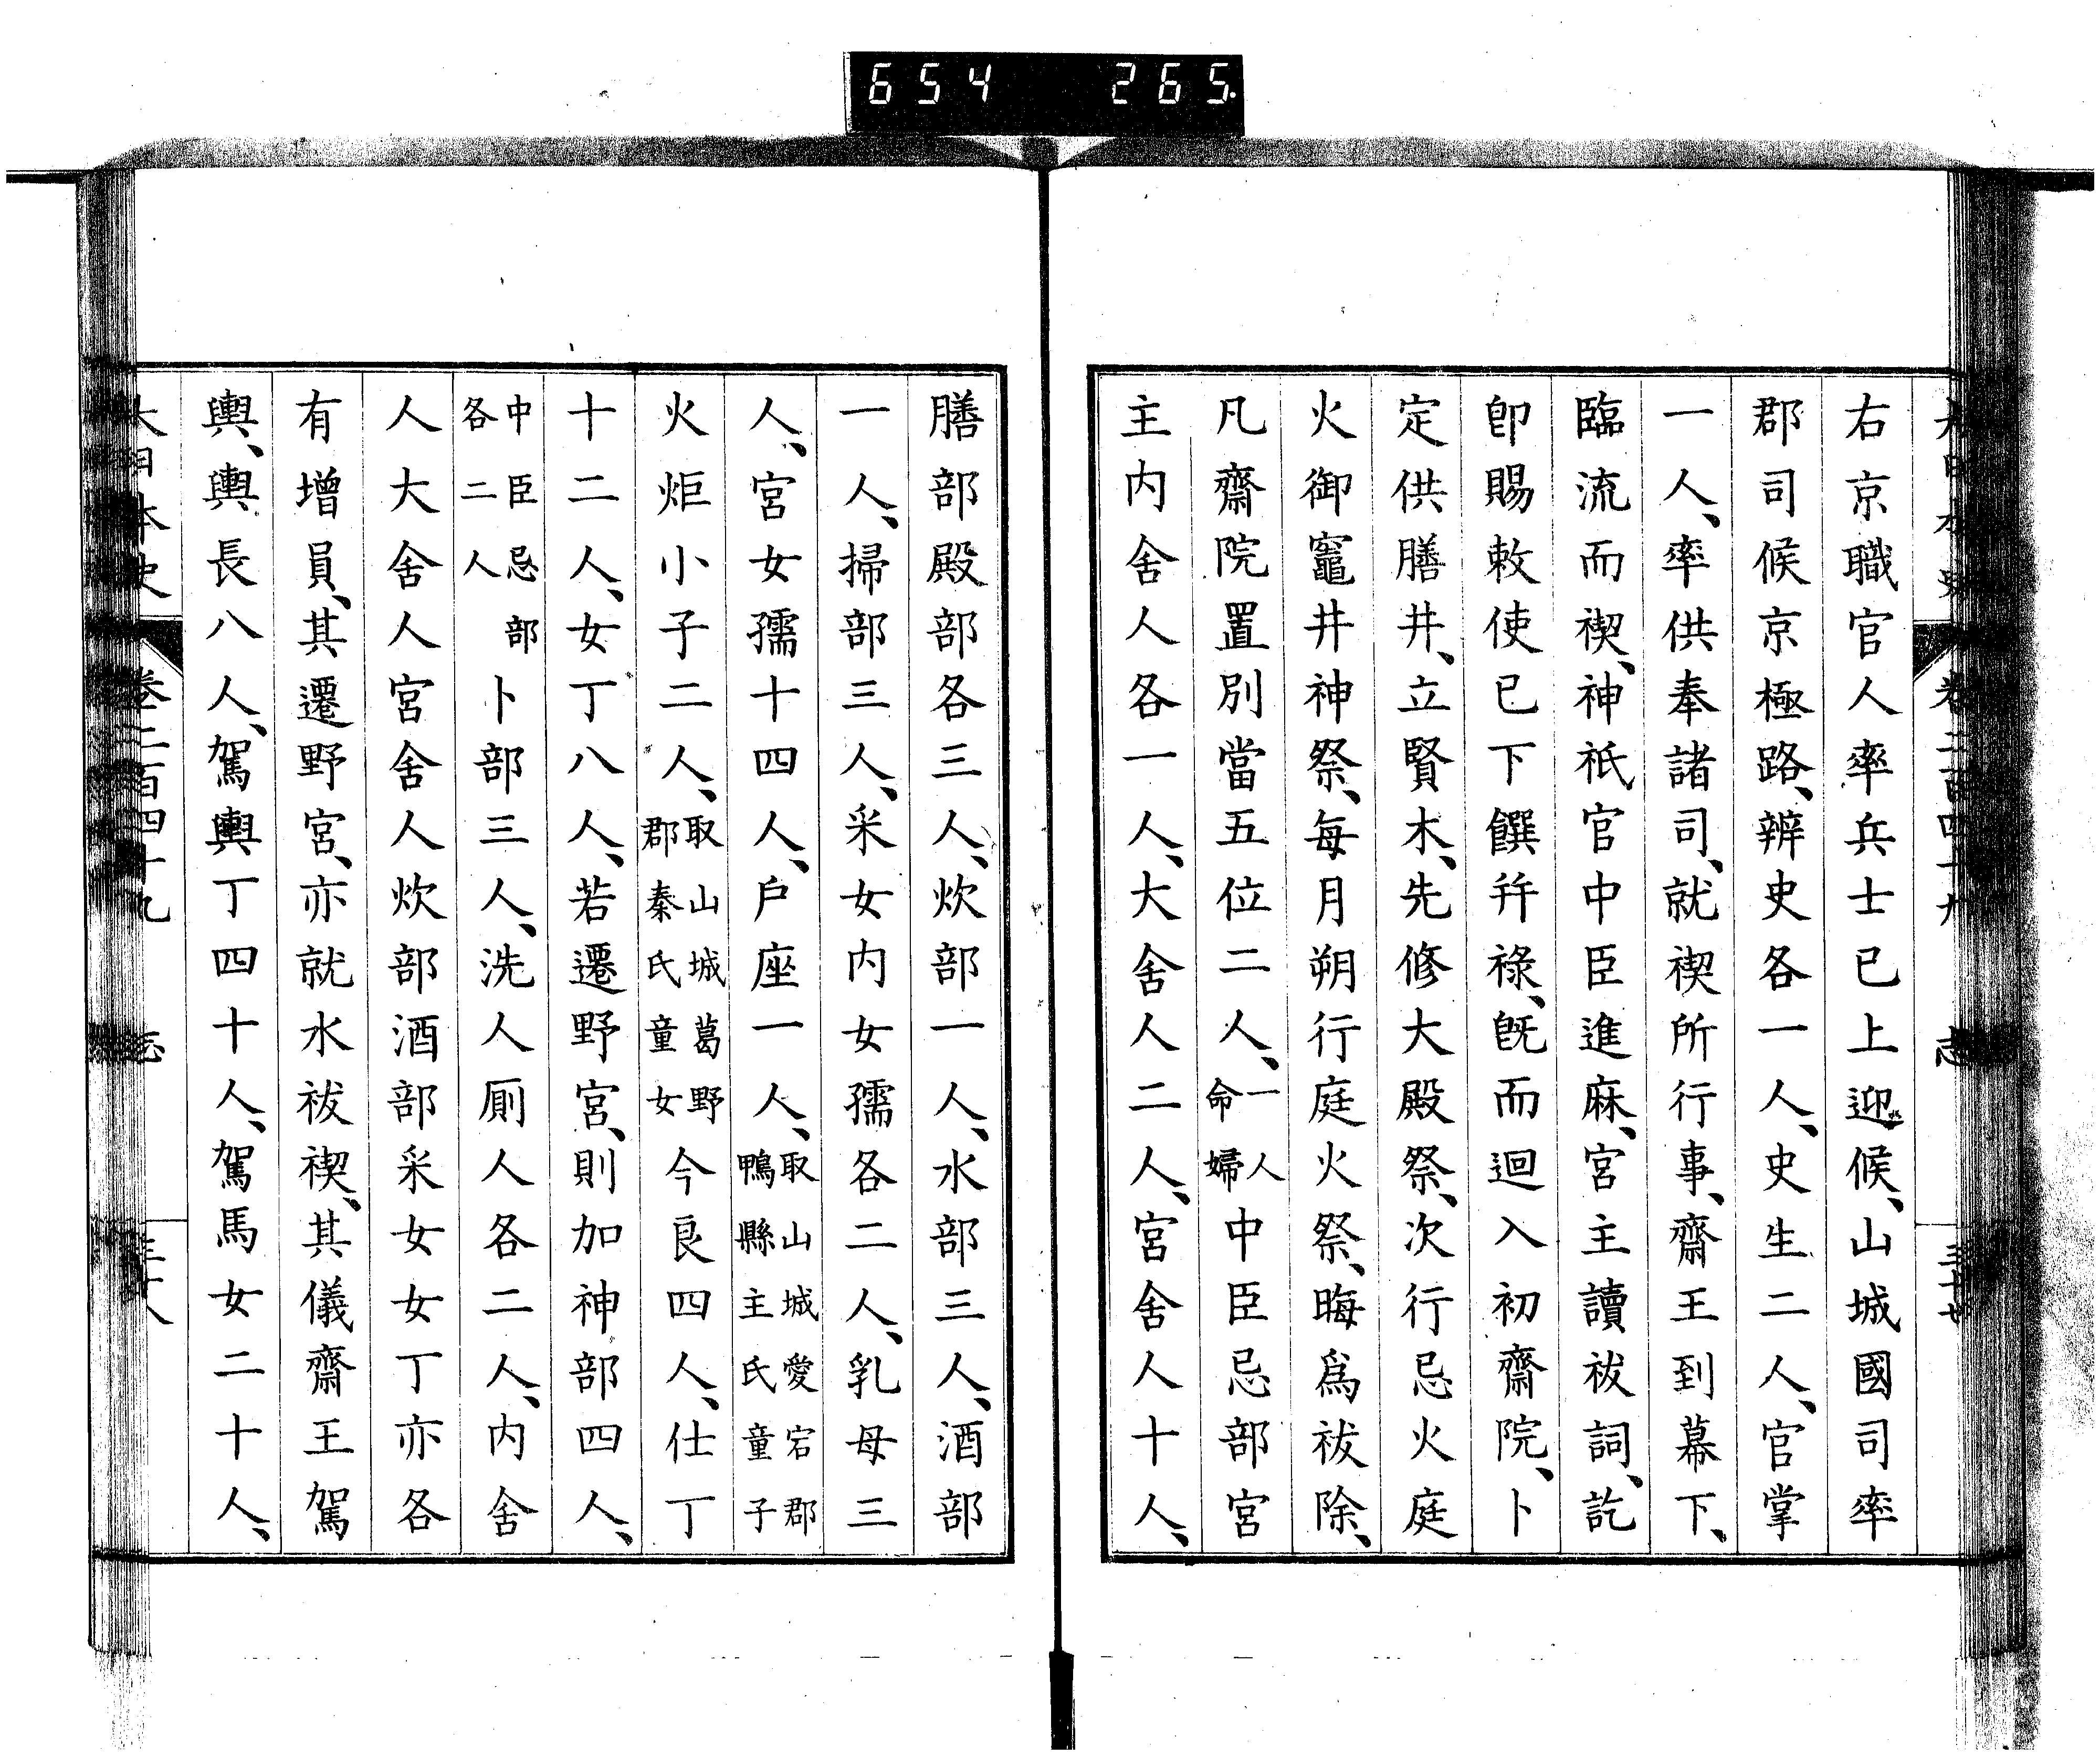 654 265.
大日本史 卷二百四十九 志 三十七
右京職官人率兵士已上迎候、山城國司率
郡司候京極路、辨史各一人、史生二人、官掌
一人、率供奉諸司、就禊所行事、齋王到幕下、
臨流而禊、神祇官中臣進麻、宮主讀祓詞、訖
卽賜敕使已下饌幷祿、旣而迴入初齋院、卜
定供膳井、立賢木、先修大殿祭、次行忌火庭
火御竈井神祭、每月朔行庭火祭、晦爲祓除、
凡齋院置別當五位二人、一人命婦中臣忌部宮
主內舍人各一人、大舍人二人、宮舍人十人、
膳部殿部各三人、炊部一人、水部三人、酒部
一人、掃部三人、采女內女孺各二人、乳母三
人、宮女孺十四人、戶座一人、取山城愛宕郡鴨縣主氏童子
火炬小子二人、取山城葛野郡秦氏童女今良四人、仕丁
十二人、女丁八人、若遷野宮、則加神部四人、
中臣忌部各二人卜部三人、洗人厠人各二人、內舍
人大舍人宮舍人炊部酒部采女女丁亦各
有增員、其遷野宮、亦就水祓禊、其儀齋王駕
輿、輿長八人、駕輿丁四十人、駕馬女二十人、
大日本史 卷二百四十九 志 三十八